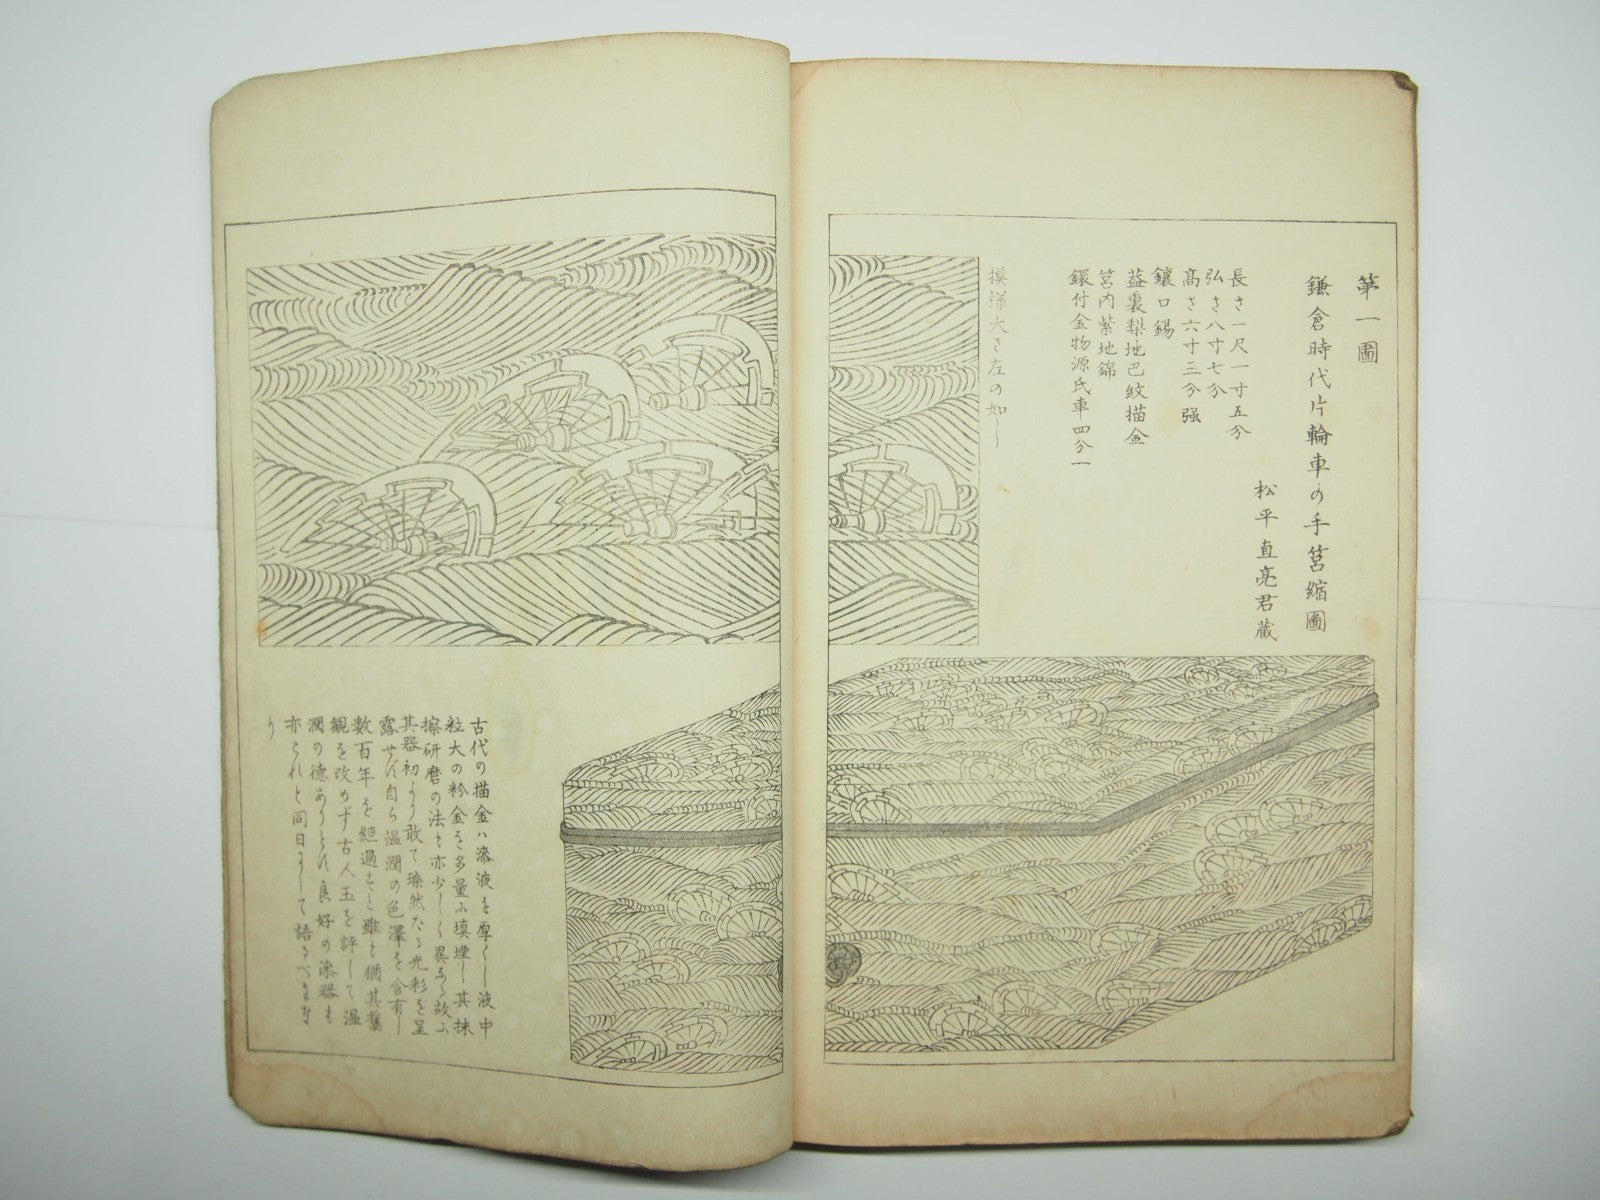 第一圖
鎌倉時代片輪車の手筥縮圖
松平直亮君蔵
長さ一尺一寸五分
弘さ八寸七分
髙さ六寸三分强
鑲口錫
葢裏梨地巴紋描金
筥内紫地錦
鐶付金物源氏車四分一
摸様大さ左の如し
古代の描金ハ漆液を厚くし液中
粒大の粉金を多量ふ塡埋し其抹
擦研磨の法も亦少しく異なる故ふ
其器初より敢て璨然たる光彩を呈
露せず自ら温潤の色澤を含有し
数百年を經過すと雖も猶其舊
観を改めず古人玉を評して温
潤の德ありとれ良好の漆器も
亦これと同日にして語るべきな
り